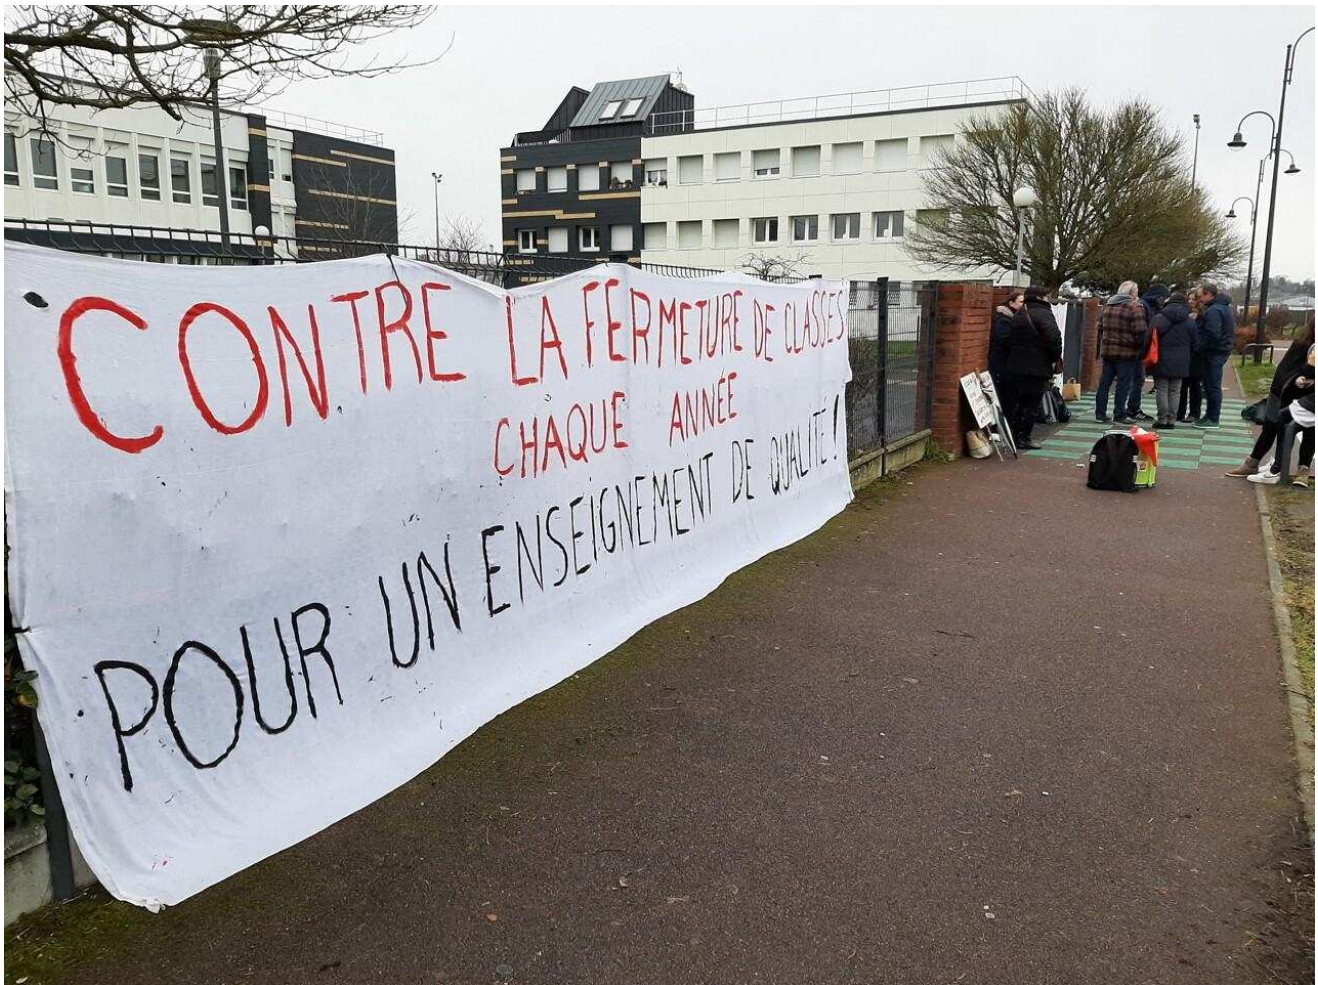 CONTRE LA FERMETURE DE CLASSES
CHAQUE ANNÉE
POUR UN ENSEIGNEMENT DE QUALITÉ !